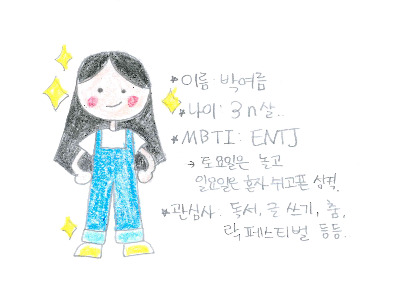 ★이름: 박여름
★나이: 3n살..
★MBTI: ENTJ
→ 토요일은 놀고
일요일은 혼자 쉬고픈 성격.
★관심사: 독서, 글 쓰기, 춤,
락 페스티벌 등등.